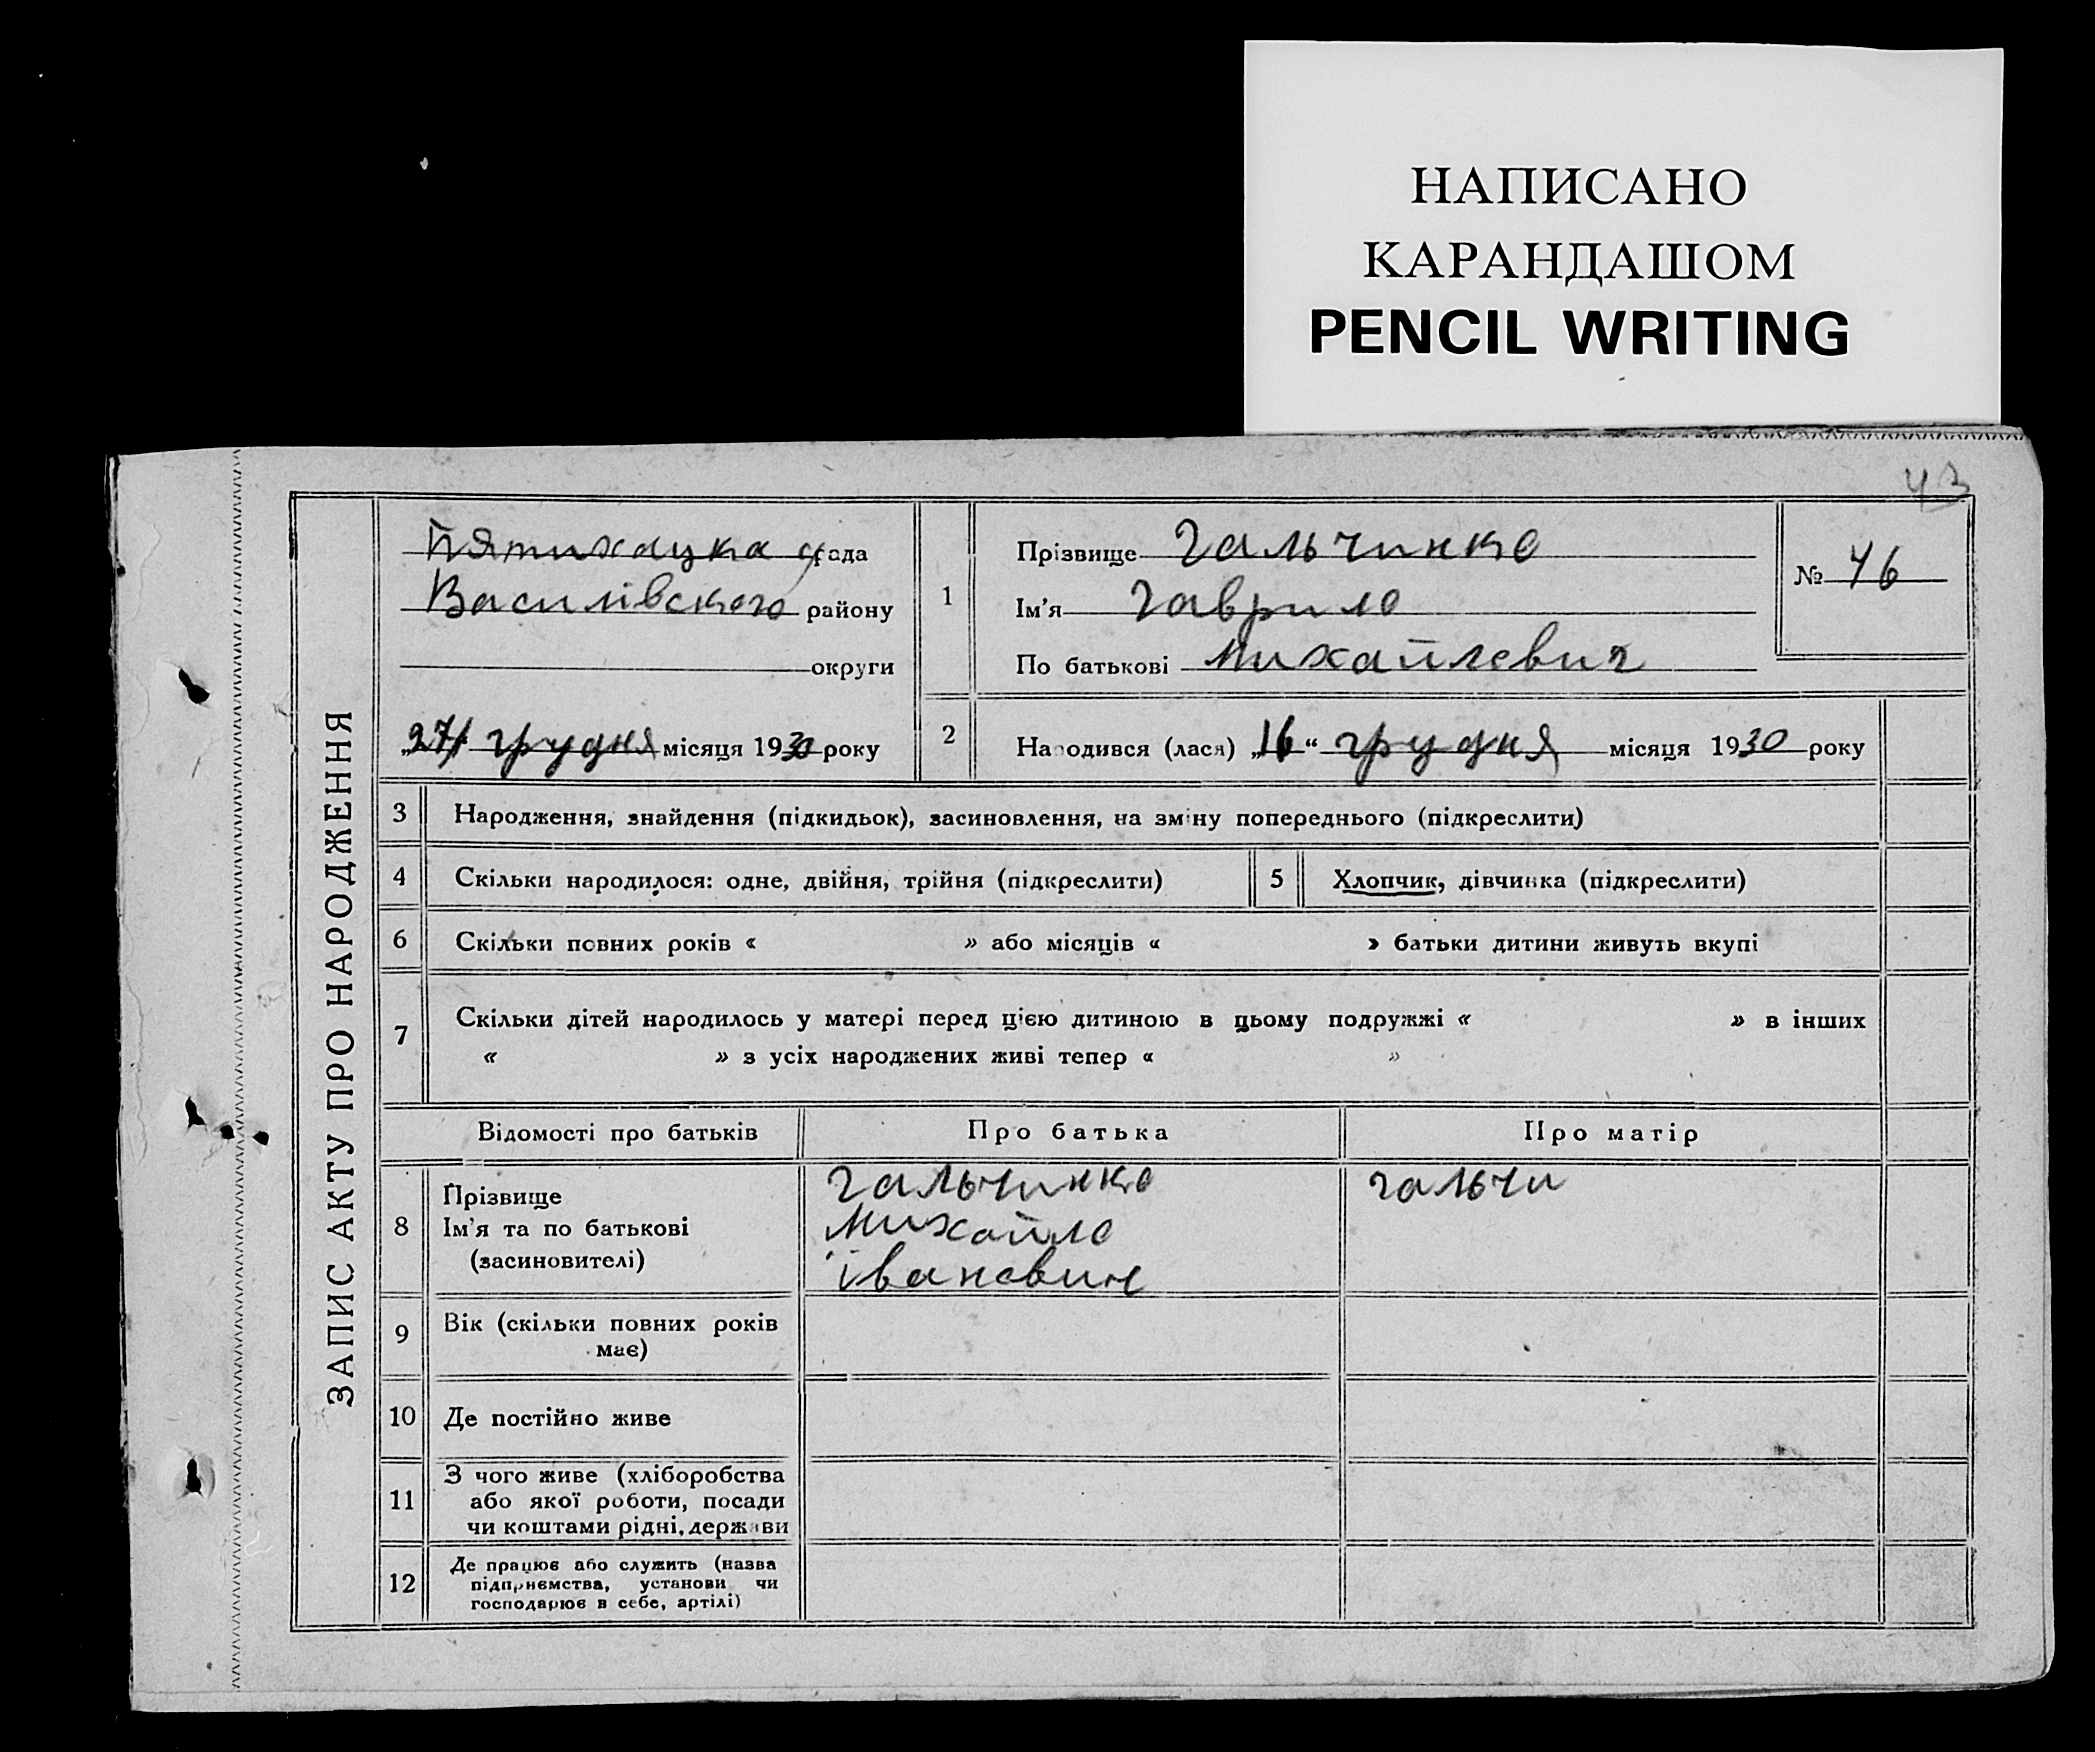 НАПИСАНО
КАРАНДАШОМ
PENCIL WRITING
43
ЗАПИС АКТУ ПРО НАРОДЖЕННЯ
Пятихацка с/рада
Василівского району
округи
„27“ грудня місяця 1930 року
1
Прізвище Гальчинко
Ім’я Гаврило
По батькові Михайлович
№ 46
2
Народився (лася) „16“ грудня місяця 1930 року
3 Народження, знайдення (підкидьок), засиновлення, на зміну попереднього (підкреслити)
4 Скільки народилося: одне, двійня, трійня (підкреслити)
5 Хлопчик, дівчинка (підкреслити)
6 Скільки повних років « » або місяців « » батьки дитини живуть вкупі
7 Скільки дітей народилось у матері перед цією дитиною в цьому подружжі « » в інших
« » з усіх народжених живі тепер « »
Відомості про батьків Про батька Про матір
8
Прізвище
Ім’я та по батькові
(засиновителі)
Гальчинко
Михайло
Іванович
Гальчи
9 Вік (скільки повних років
має)
10 Де постійно живе
11
З чого живе (хліборобства
або якої роботи, посади
чи коштами рідні, держави
12
Де працює або служить (назва
підприємства, установи чи
господарює в себе, артілі)